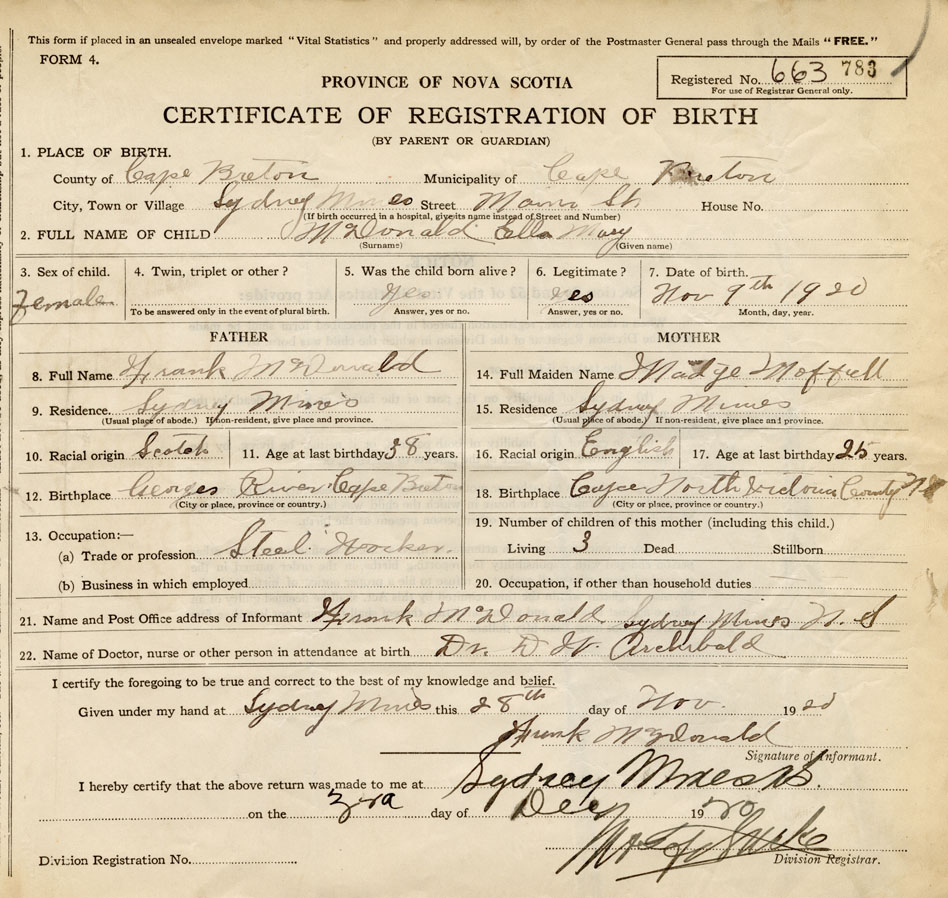 This form if placed in an unsealed envelope marked "Vital Statistics" and properly addressed will, by order of the Postmaster General pass through the Mails "FREE."
FORM 4.
Registered No. 663 783
For use of Registrar General only.
PROVINCE OF NOVA SCOTIA
CERTIFICATE OF REGISTRATION OF BIRTH
(BY PARENT OR GUARDIAN)
1. PLACE OF BIRTH.
County of Cape Breton Municipality of Cape Breton
City, Town or Village Sydney Mines Street Main St House No.
(If birth occurred in a hospital, give its name instead of Street and Number)
2. FULL NAME OF CHILD McDonald Ella Mary
(Surname) (Given name)
3. Sex of child. 4. Twin, triplet or other? 5. Was the child born alive? 6. Legitimate? 7. Date of birth.
Female Yes Yes Nov 9th 1920
To be answered only in the event of plural birth. Answer, yes or no. Answer, yes or no. Month, day, year.
FATHER
8. Full Name Frank McDonald
9. Residence. Sydney Mines
(Usual place of abode.) If non-resident, give place and province.
10. Racial origin Scotch 11. Age at last birthday 38 years.
12. Birthplace Georges River Cape Breton
(City or place, province or country.)
13. Occupation:—
(a) Trade or profession Steel Worker.
(b) Business in which employed
MOTHER
14. Full Maiden Name Madge Moffatt
15. Residence Sydney Mines
(Usual place of abode.) If non-resident, give place and province.
16. Racial origin English 17. Age at last birthday 25 years.
18. Birthplace Cape North Victoria County N S
(City or place, province or country.)
19. Number of children of this mother (including this child.)
Living 3 Dead Stillborn
20. Occupation, if other than household duties
21. Name and Post Office address of Informant Frank McDonald Sydney Mines N. S
22. Name of Doctor, nurse or other person in attendance at birth Dr. D W. Archibald
I certify the foregoing to be true and correct to the best of my knowledge and belief.
Given under my hand at Sydney Mines this 28th day of Nov. 1920
Frank McDonald
Signature of Informant.
I hereby certify that the above return was made to me at Sydney Mines
on the 3rd day of Dec 1920
Division Registration No. Division Registrar.